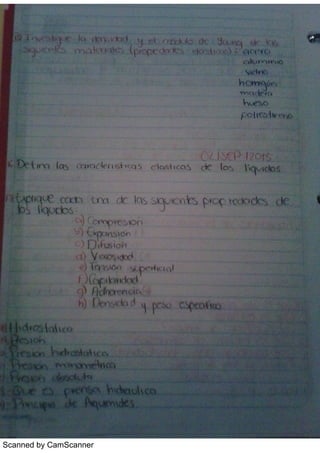 Investigue la densidad y el modulo de Young de los
siguientes materiales (propiedades elasticas): acero
aluminio
vidrio
hormigón
madera
hueso
poliestireno
02/SEP/2015
Defina las caracteristicas elasticas de los liquidos
Explique cada una de las siguientes propiedades de
los liquidos:
a) Compresion
b) Expansion
c) Difusion
d) Viscosidad
e) Tension superficial
f) Capilaridad
g) Adherencia
h) Densidad y peso especifico
Hidrostatica
Presion
Presion hidrostatica
Presion manometrica
Presion absoluta
Que es prensa hidraulica
Principio de Arquimides
Scanned by CamScanner